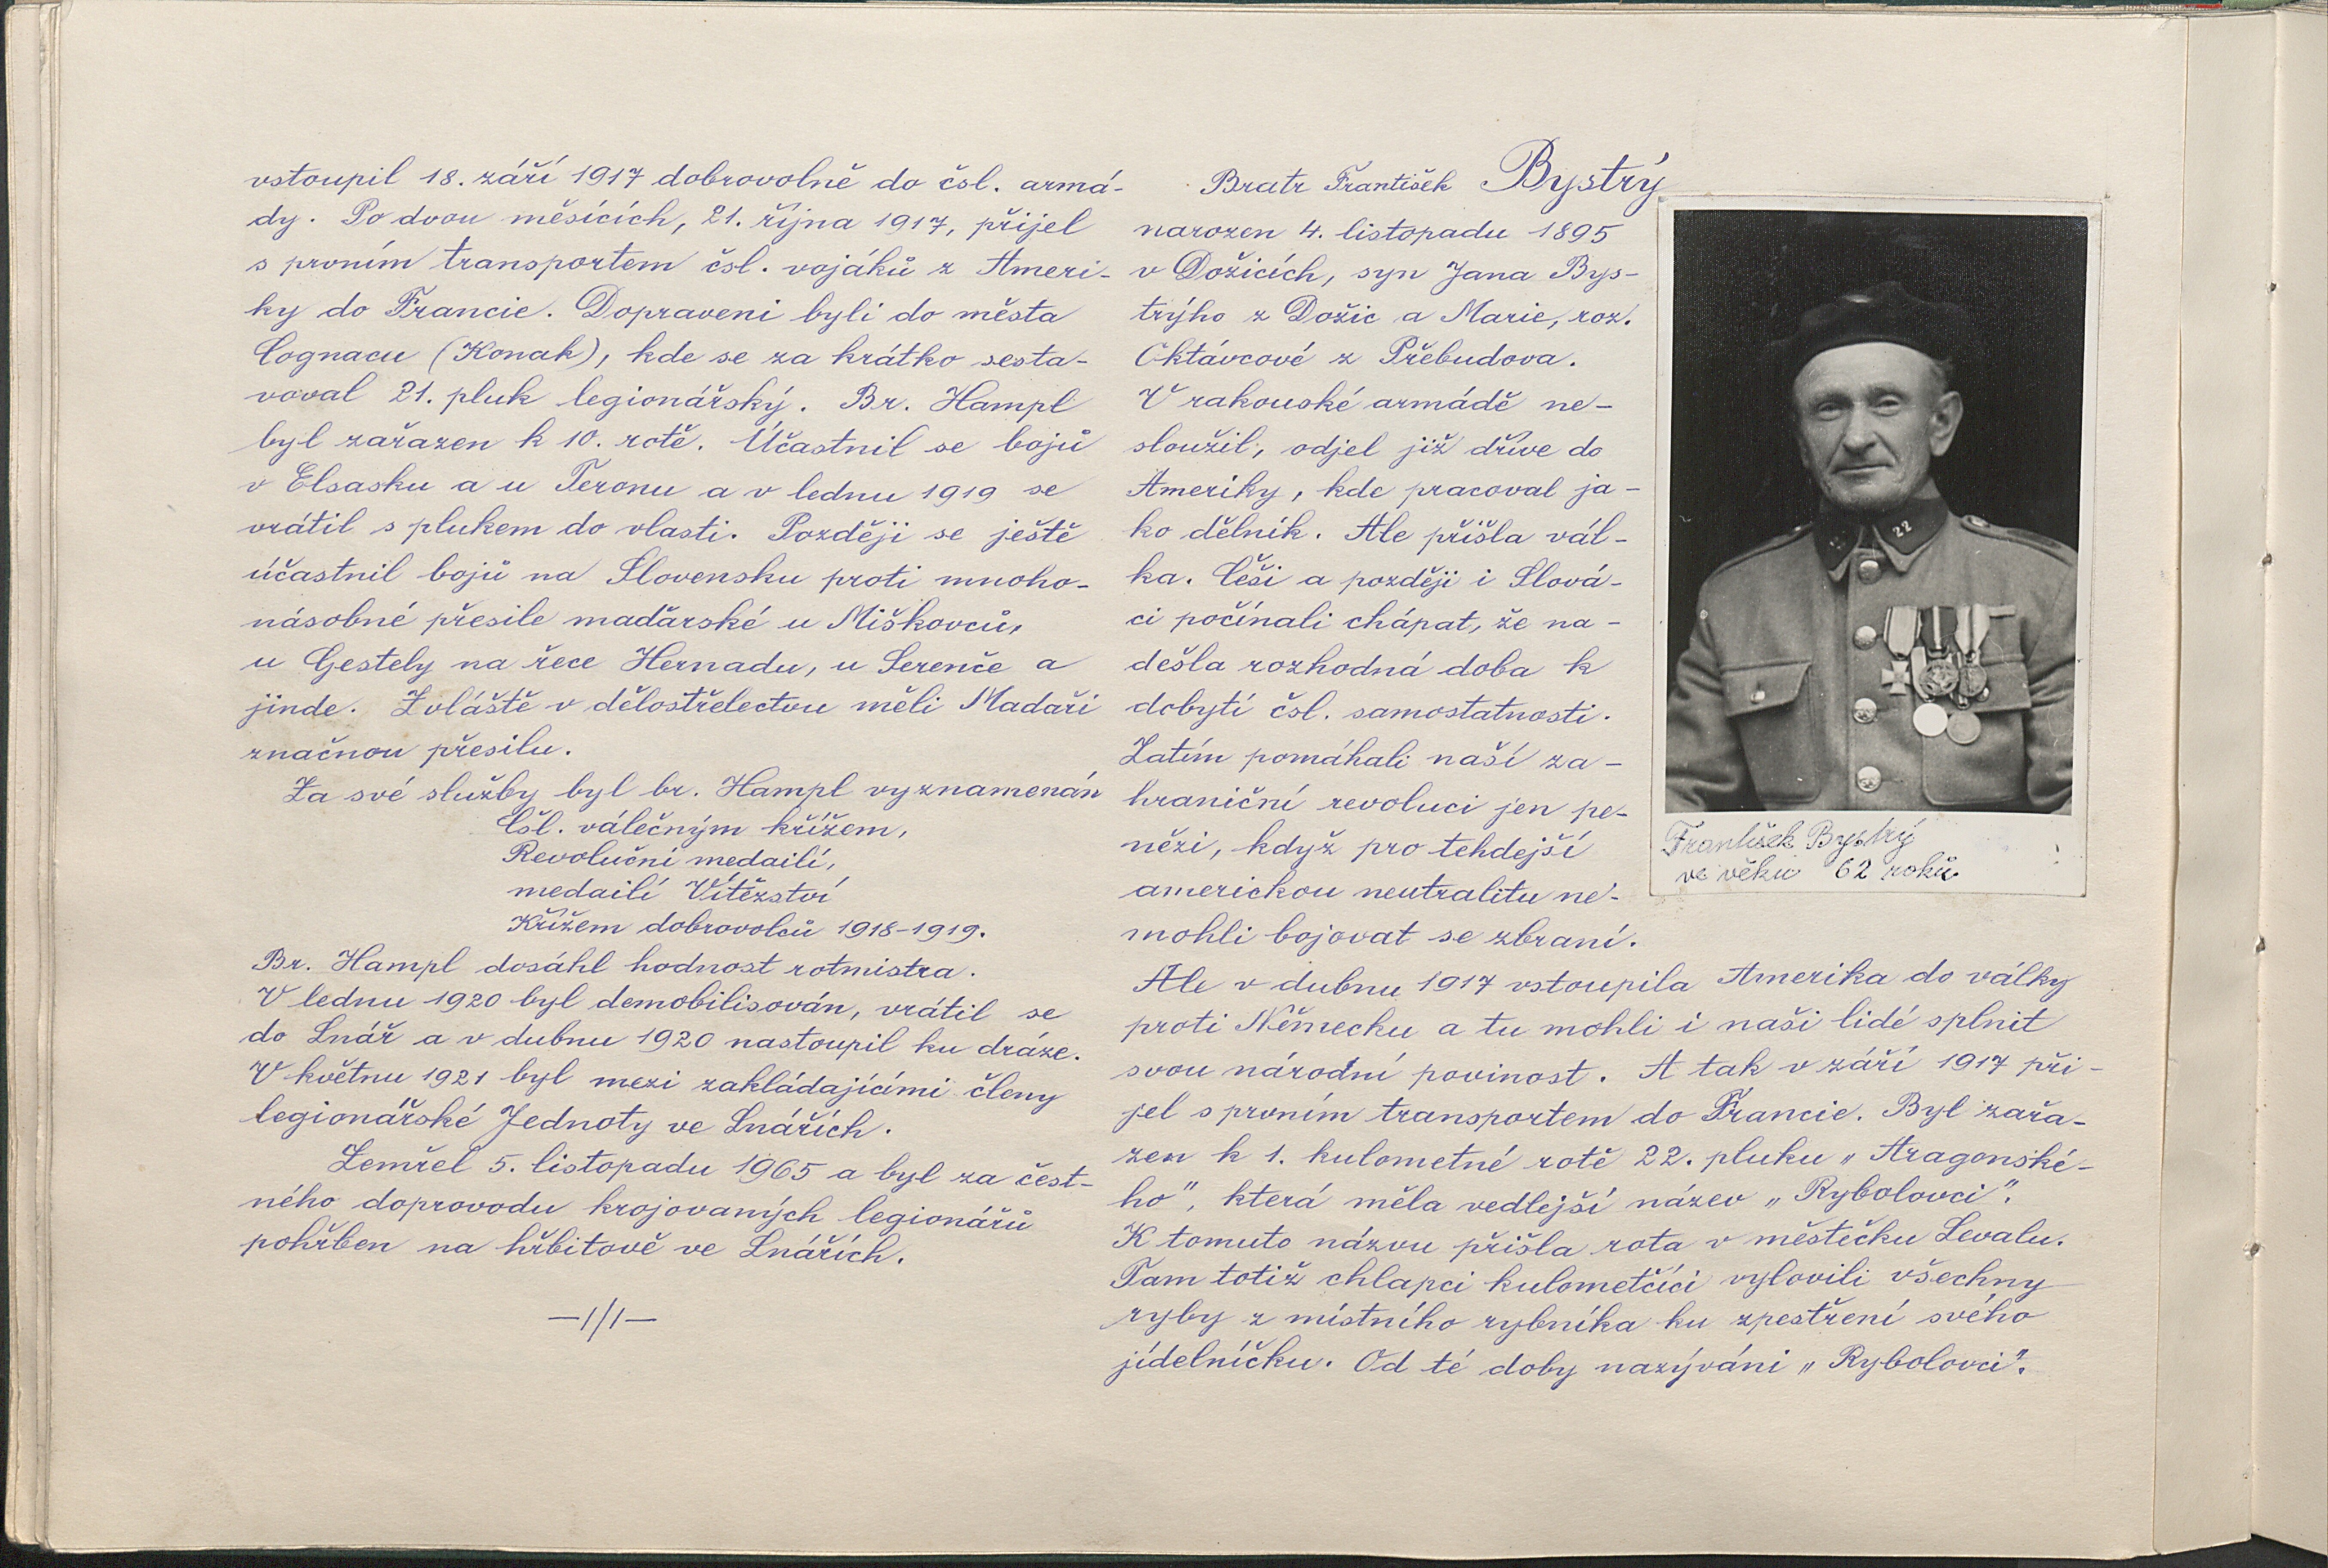 vstoupil 18. září 1917 dobrovolně do čsl. armá-
dy. Po dvou měsících, 21. října 1917, přijel
s prvním transportem čsl. vojáků z Ameri-
ky do Francie. Dopraveni byli do města
Cognacu (Konak), kde se za krátko sesta-
voval 21. pluk legionářský. Br. Hampl
byl zařazen k 10. rotě. Účastnil se bojů
v Elsasku a u Teronu a v lednu 1919 se
vrátil s plukem do vlasti. Později se ještě
účastnil bojů na Slovensku proti mnoho-
násobné přesile maďarské u Miškovců,
u Gestely na řece Hernadu, u Serenče a
jinde. Zvláště v dělostřelectvu měli Maďaři
značnou přesilu.
Za své služby byl br. Hampl vyznamenán
Čsl. válečným křížem,
Revoluční medailí,
medailí Vítězství
Křížem dobrovolců 1918-1919.
Br. Hampl dosáhl hodnost rotmistra.
V lednu 1920 byl demobilisován, vrátil se
do Lnář a v dubnu 1920 nastoupil ku dráze.
V květnu 1921 byl mezi zakládajícími členy
legionářské Jednoty ve Lnářích.
Zemřel 5. listopadu 1965 a byl za čest-
ného doprovodu krojovaných legionářů
pohřben na hřbitově ve Lnářích.
—1/1—
Bratr František Bystrý
narozen 4. listopadu 1895
v Dožicích, syn Jana Bys-
trýho z Dožic a Marie, roz.
Oktávcové z Přebudova.
V rakouské armádě ne-
sloužil, odjel již dříve do
Ameriky, kde pracoval ja-
ko dělník. Ale přišla vál-
ka. Češi a později i Slová-
ci počínali chápat, že na-
dešla rozhodná doba k
dobytí čsl. samostatnosti.
Zatím pomáhali naší za-
hraniční revoluci jen pe-
nězi, když pro tehdejší
americkou neutralitu ne-
mohli bojovat se zbraní.
Ale v dubnu 1917 vstoupila Amerika do války
proti Německu a tu mohli i naši lidé splnit
svou národní povinost. A tak v září 1917 při-
jel s prvním transportem do Francie. Byl zařa-
zen k 1. kulometné rotě 22. pluku „Aragonské-
ho", která měla vedlejší název „Rybolovci".
K tomuto názvu přišla rota v městečku Levalu.
Tam totiž chlapci kulometčíci vylovili všechny
ryby z místního rybníka ku zpestření svého
jídelníčku. Od té doby nazýváni „Rybolovci".
22
22
František Bystrý
ve věku 62 roků.